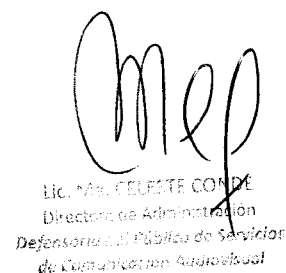 Lic. Ma. CELESTE CONDE
Directora de Administración
Defensoría del Público de Servicios
de Comunicación Audiovisual